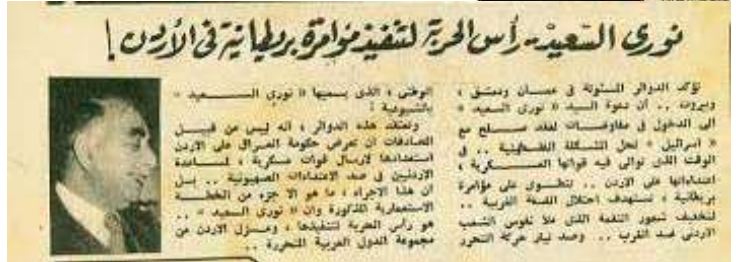 نورى السعيد .. رأس الحربة لتنفيذ مؤامرة بريطانية فى الأردن!
تؤكد الدوائر المسئولة فى عمان ودمشق ،
وبيروت .. أن دعوة السيد « نورى السعيد »
الى الدخول فى مفاوضات لعقد صلح مع
« اسرائيل » لحل المشكلة الفلسطينية .. فى
الوقت الذى توالى فيه قواتها العسكرية ،
اعتداءاتها على الاردن .. تنطوى على مؤامرة
بريطانية ، تستهدف احتلال الضفة الغربية ..
لتخفيف شعور النقمة الذى ملأ نفوس الشعب
الاردنى ضد الغرب .. وصد تيار حركة التحرر
الوطنى ، الذى يسميها « نورى السعيد »
بالشيوعية !
وتعتقد هذه الدوائر ، أنه ليس من قبيل
الصادفات ان تعرض حكومة العراق على الاردن
استعدادها لارسال قوات عسكرية ، لمساعدة
الاردنيين فى صد الاعتداءات الصهيونية .. بل
ان هذا الاجراء ، ما هو الا جزء من الخطة
الاستعمارية المذكورة وان « نورى السعيد » ..
هو رأس الحربة لتنفيذها ، وعزل الاردن عن
مجموعة الدول العربية المتحررة ..